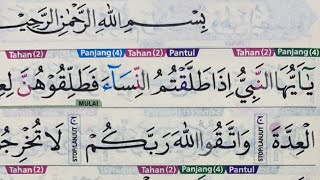 بِسْمِ اللهِ الرَّحْمٰنِ الرَّحِيْمِ
Tahan (2) Panjang (4) Tahan (2) Pantul Tahan (2) Panjang (4)
يٰٓاَيُّهَا النَّبِيُّ اِذَا طَلَّقْتُمُ النِّسَاۤءَ فَطَلِّقُوْهُنَّ
MULAI
الْعِدَّةَ STOP/LANJUT وَاتَّقُوا اللهَ رَبَّكُمْ STOP/LANJUT لَا
Tahan (2) Tahan (2) Panjang (4) Pantul